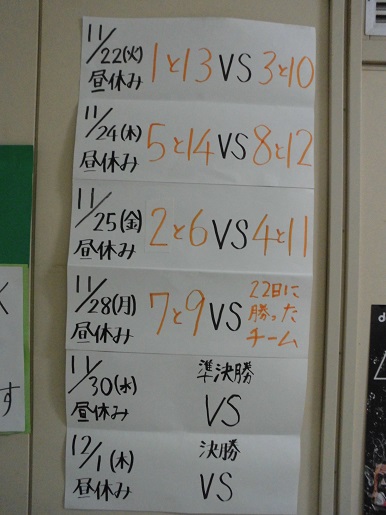 11/22(火) 昼休み 1と13 VS 3と10
11/24(木) 昼休み 5と14 VS 8と12
11/25(金) 昼休み 2と6 VS 4と11
11/28(月) 昼休み 7と9 VS 22日に勝ったチーム
11/30(水) 昼休み 準決勝 VS
12/1(木) 昼休み 決勝 VS
く
す